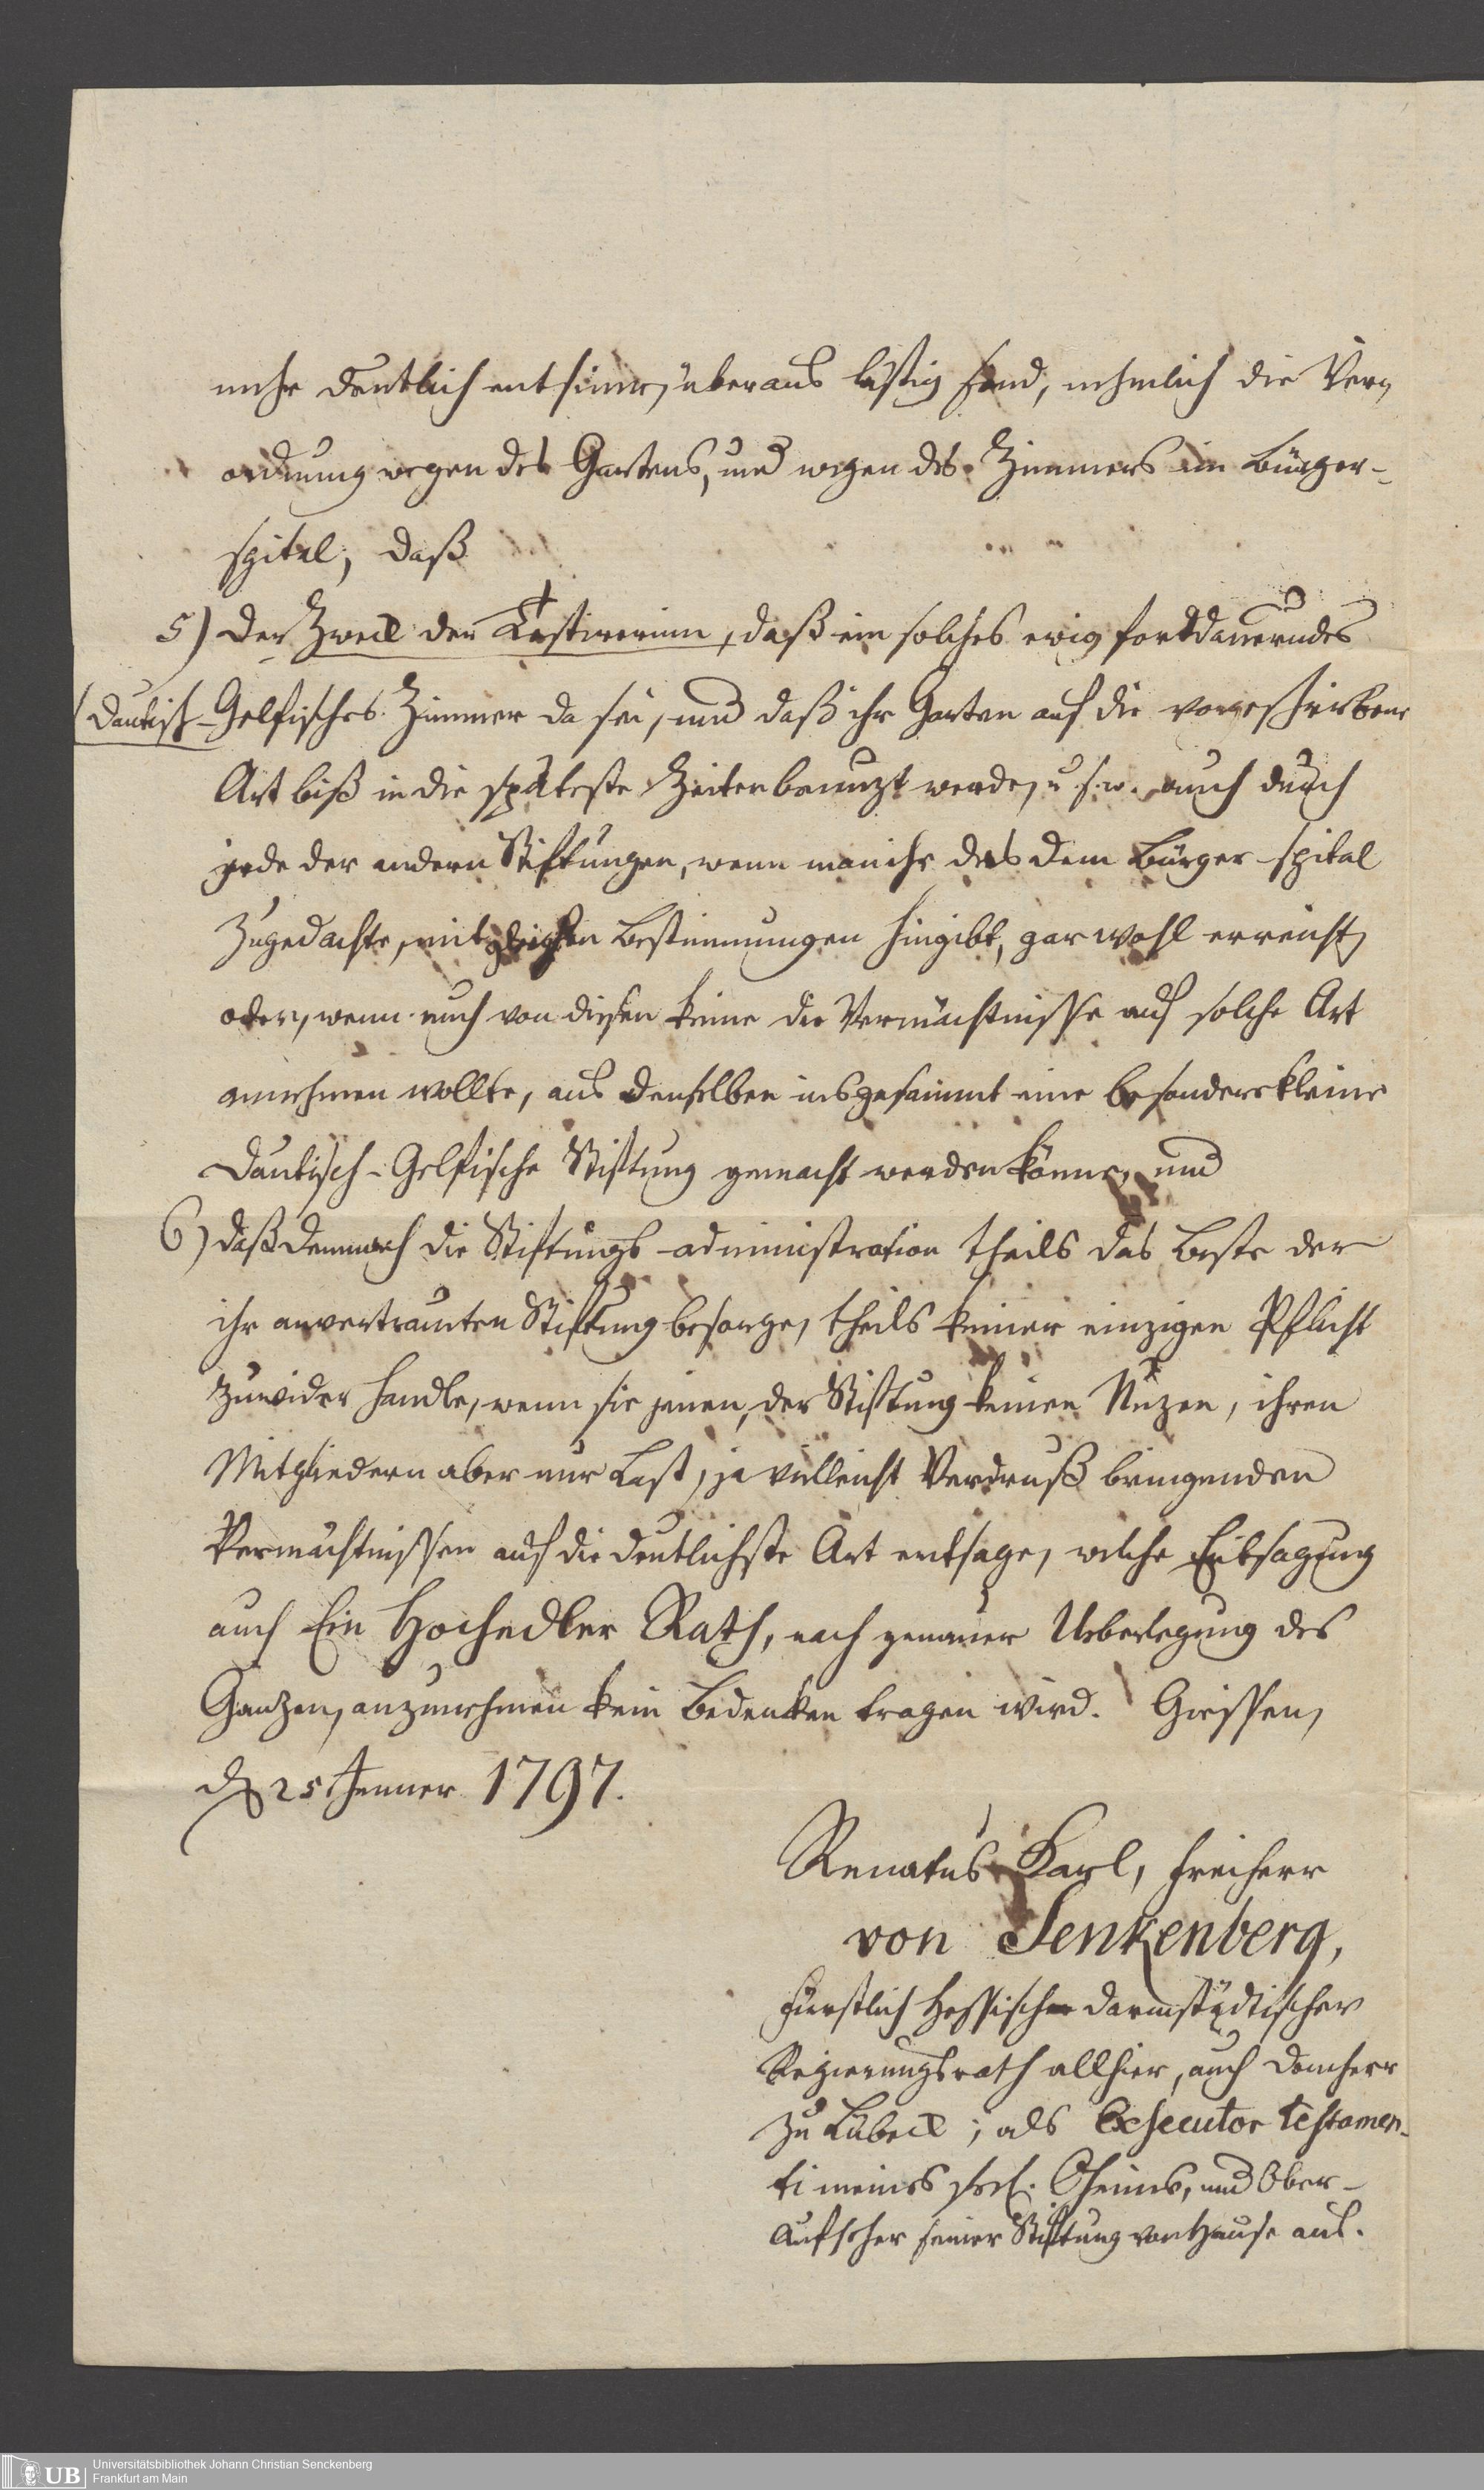 mehr deutlich entsinne, überaus lästig fand, nehmlich die Ver-
ordnung wegen des Gartens, und wegen des Zimmers im Bürger-
spital; daß
5) der Zweck der Testirerinn, daß ein solches ewig fortdauerndes
Dautisch-Gelfisches Zimmer da sei, und daß ihr Garten auf die vorgeschriebene
Art biß in die späteste Zeiten benuzt werde, u. s. w. auch durch
jede der andern Stiftungen, wenn man ihr das dem Bürger-spital
Zugedachte, mit gleichen Bestimmungen hingibt, gar wohl erreicht,
oder, wenn auch von diesen keine die Vermächtnisse auf solche Art
annehmen wollte, aus denselben insgesammt eine besondere kleine
Dautisch-Gelfische Stiftung gemacht werden könne, und
6) daß demnach die Stiftungs-administration theils das Beste der
ihr anvertrauten Stiftung besorge, theils keiner einzigen Pflicht
zuwider handle, wenn sie jenen, der Stiftung keinen Nuzen, ihren
Mitgliedern aber nur Last, ja villeicht Verdruß bringenden
Vermächtnissen auf die deutlichste Art entsage, welche Entsagung
auch Ein Hochedler Rath, nach genauer Ueberlegung des
Ganzen, anzunehmen kein Bedenken tragen wird. Giessen,
d. 25 Jenner 1797.
Renatus Karl, Freiherr
von Senkenberg,
Fürstlich Hessisch Darmstädtischer
Regierungsrath allhier, auch Domherr
zu Lübeck; als Exsecutor testamen-
ti meines seel. Oheims, und Ober-
Aufseher seiner Stiftung von Hause aus.
UB
Universitätsbibliothek Johann Christian Senckenberg
Frankfurt am Main